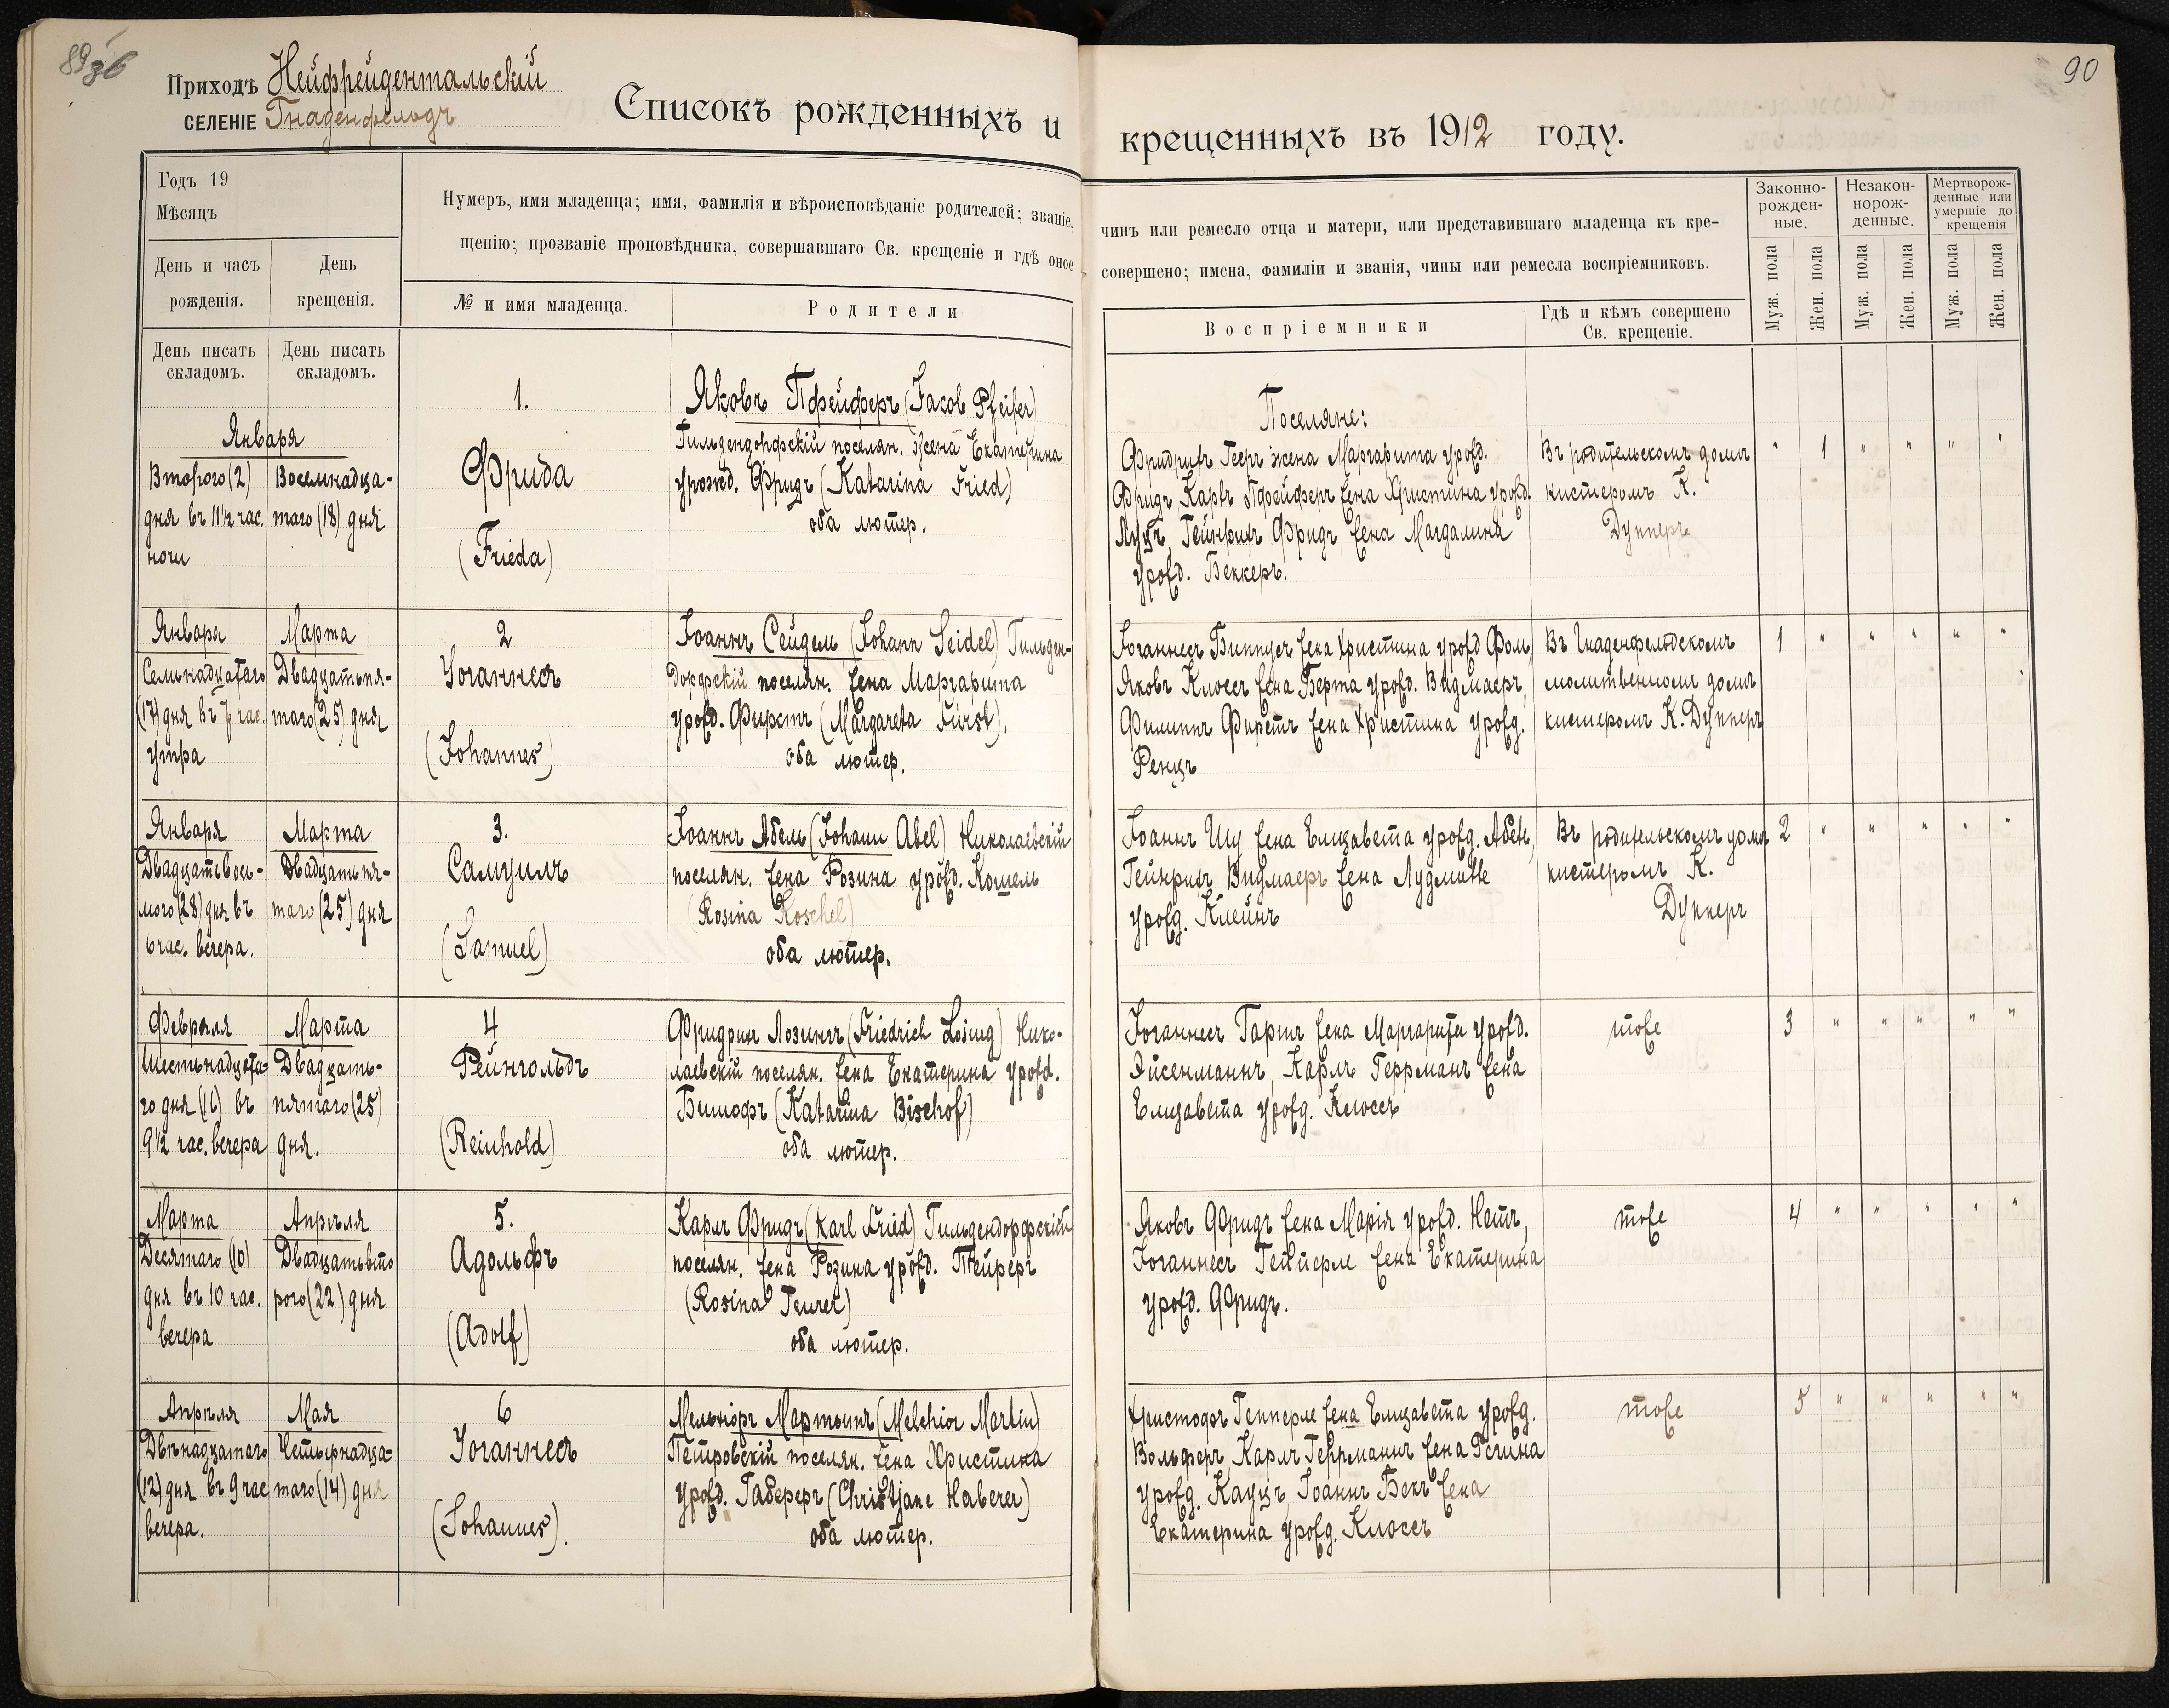 89 36
90
Приходъ Нейфрейдентальскій
СЕЛЕНІЕ Гнаденфельдъ
Списокъ рожденныхъ и крещенныхъ въ 1912 году.
Годъ 19
Мѣсяцъ
День и часъ рожденія.
День крещенія.
Нумеръ, имя младенца; имя, фамилія и вѣроисповѣданіе родителей; званіе, чинъ или ремесло отца и матери, или представившаго младенца къ кре-
щенію; прозваніе проповѣдника, совершавшаго Св. крещеніе и гдѣ оное совершено; имена, фамиліи и званія, чины или ремесла воспріемниковъ.
№ и имя младенца.
Родители
Воспріемники
Гдѣ и кѣмъ совершено
Св. крещеніе.
Законно-
рожден-
ные.
Незакон-
норож-
денные.
Мертворож-
денные или
умершіе до
крещенія
Муж. пола
Жен. пола
Муж. пола
Жен. пола
Муж. пола
Жен. пола
День писать
складомъ.
День писать
складомъ.
Января
Второго (2)
дня въ 11½ час.
ночи
Восемнадца-
таго (18) дня
1.
Фрида
(Frieda)
Яковъ Пфейферъ (Jacob Pfeifer)
Гильдендорфскій поселян. жена Екатерина
урожд. Фридъ (Katarina Fried)
оба лютер.
Поселяне:
Фридрихъ Гееръ жена Маргарита урожд.
Фридъ, Карлъ Пфейферъ жена Христина урожд.
Луцъ, Гейнрихъ Фридъ, жена Магдалина
урожд. Беккеръ.
Въ родительскомъ домѣ
кистеромъ К.
Дупперъ
" 1 " " " "
Января
Семьнадцатаго
(17) дня въ 7 час.
утра
Марта
Двадцатьпя-
таго (25) дня
2
Іоганнесъ
(Johannes)
Іоаннъ Сейдель (Johann Seidel) Гильден-
дорфскій поселян. жена Маргарита
урожд. Фирстъ (Margareta Fürst).
оба лютер.
Іоганнесъ Биппусъ жена Христина урожд. Фольц,
Яковъ Клоссъ жена Берта урожд. Видмаеръ,
Филиппъ Фирстъ жена Христина урожд.
Ренцъ
Въ Гнаденфельдскомъ
молитвенномъ домѣ
кистеромъ К. Дупперъ
1 " " " " "
Января
Двадцатьвось-
мого (28) дня въ
6 час. вечера.
Марта
Двадцатьпя-
таго (25) дня
3.
Самуилъ
(Samuel)
Іоаннъ Абель (Johann Abel) Николаевскій
поселян. жена Розина урожд. Кошель
(Rosina Koschel)
оба лютер.
Іоаннъ Шу жена Елизавета урожд. Абель,
Гейнрихъ Видмаеръ жена Лудмилле
урожд. Клейнъ
Въ родительскомъ домѣ
кистеромъ К.
Дупперъ
2 " " " " "
Февраля
Шестьнадцата-
го дня (16) въ
9½ час. вечера
Марта
Двадцать-
пятаго (25)
дня.
4
Рейнгольдъ
(Reinhold)
Фридрихъ Лозингъ (Friedrich Losing) Нико-
лаевскій поселян. жена Екатерина урожд.
Бишофъ (Katarina Bischof)
оба лютер.
Іоганнесъ Гартъ жена Маргарита урожд.
Эйсенманнъ, Карлъ Геррманъ жена
Елизавета урожд. Клоссъ
тоже
3 " " " " "
Марта
Десятаго (10)
дня въ 10 час.
вечера
Апрѣля
Двадцатьвто
рого (22) дня
5.
Адольфъ
(Adolf)
Карлъ Фридъ (Karl Fried) Гильдендорфскій
поселян. жена Розина урожд. Тейреръ
(Rosina Teurer)
оба лютер.
Яковъ Фридъ жена Марія урожд. Нетъ,
Іоганнесъ жена Екатерина
урожд. Фридъ.
тоже
4 " " " " "
Апрѣля
Двѣнадцатаго
(12) дня въ 9 час
вечера.
Мая
Четырнадца-
таго (14) дня
6
Іоганнесъ
(Johannes).
Мельхіоръ Мартинъ (Melchior Martin)
Петровскій поселян. жена Христина
урожд. Габереръ (Christjane Haberer)
оба лютер.
Христофъ Гепперле жена Елизавета урожд.
Вольферъ, Карлъ Геррманнъ жена Регина
урожд. Кауцъ, Іоаннъ Бекъ жена
Екатерина урожд. Клоссъ
тоже
5 " " " " "